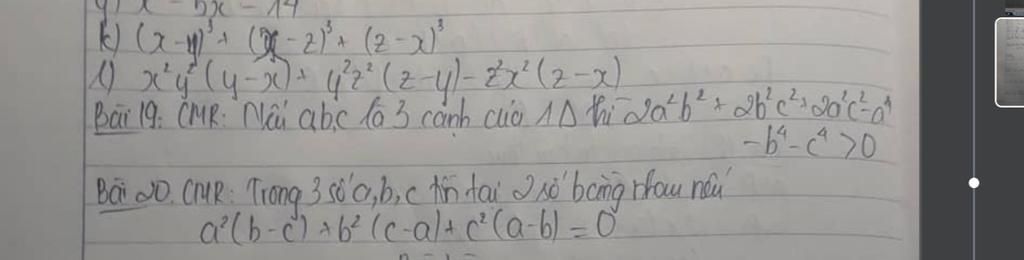 k) (x-y)³ + (y-z)³ + (z-x)³
l) x²y²(y-x) + y²z²(z-y) - z²x²(z-x)
Bài 19: CMR: Nếu a,b,c là 3 cạnh của 1Δ thì 2a²b² + 2b²c² + 2a²c² - a⁴
- b⁴ - c⁴ > 0
Bài 20. CMR: Trong 3 số a, b, c tồn tại 2 số bằng nhau nếu
a²(b-c) + b²(c-a) + c²(a-b) = 0